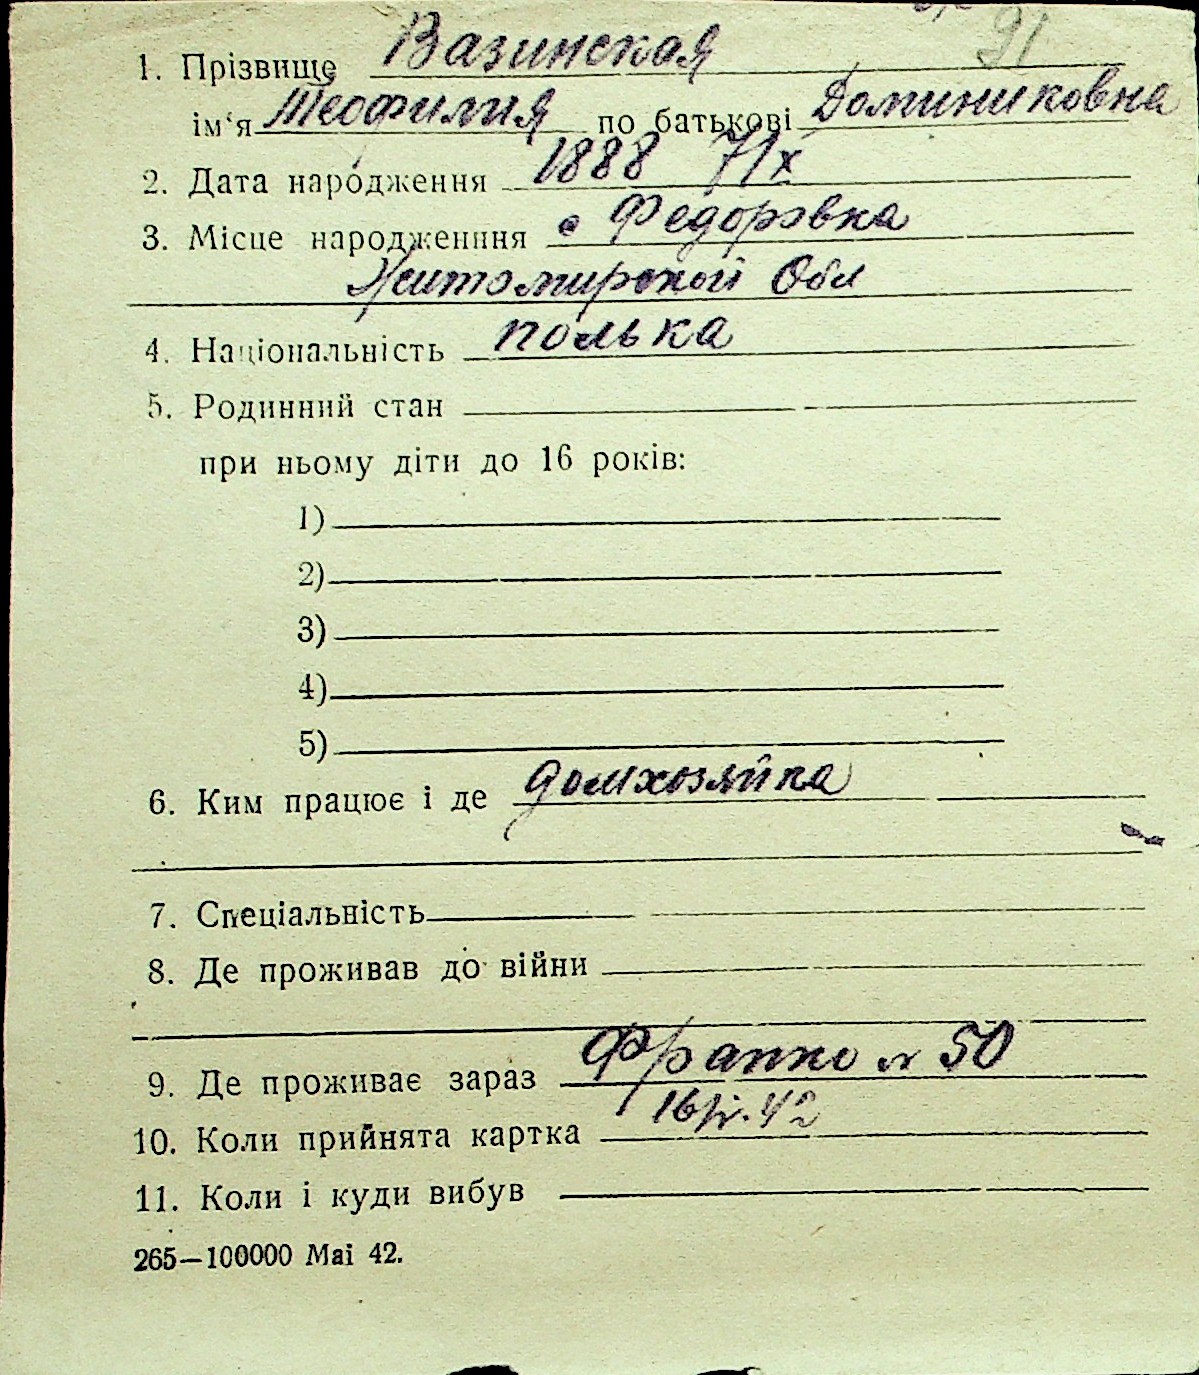 91
1. Прізвище Вазинская
ім‘я Теофилия по батькові Доминиковна
2. Дата народження 1888 7/IX
3. Місце народженння с Федоровка
Житомирской Обл
4. Національність полька
5. Родинний стан
при ньому діти до 16 років:
1)
2)
3)
4)
5)
6. Ким працює і де домхозяйка
7. Спеціальність
8. Де проживав до війни
9. Де проживає зараз Франко № 50
10. Коли прийнята картка 42
11. Коли і куди вибув
265—100000 Маі 42.